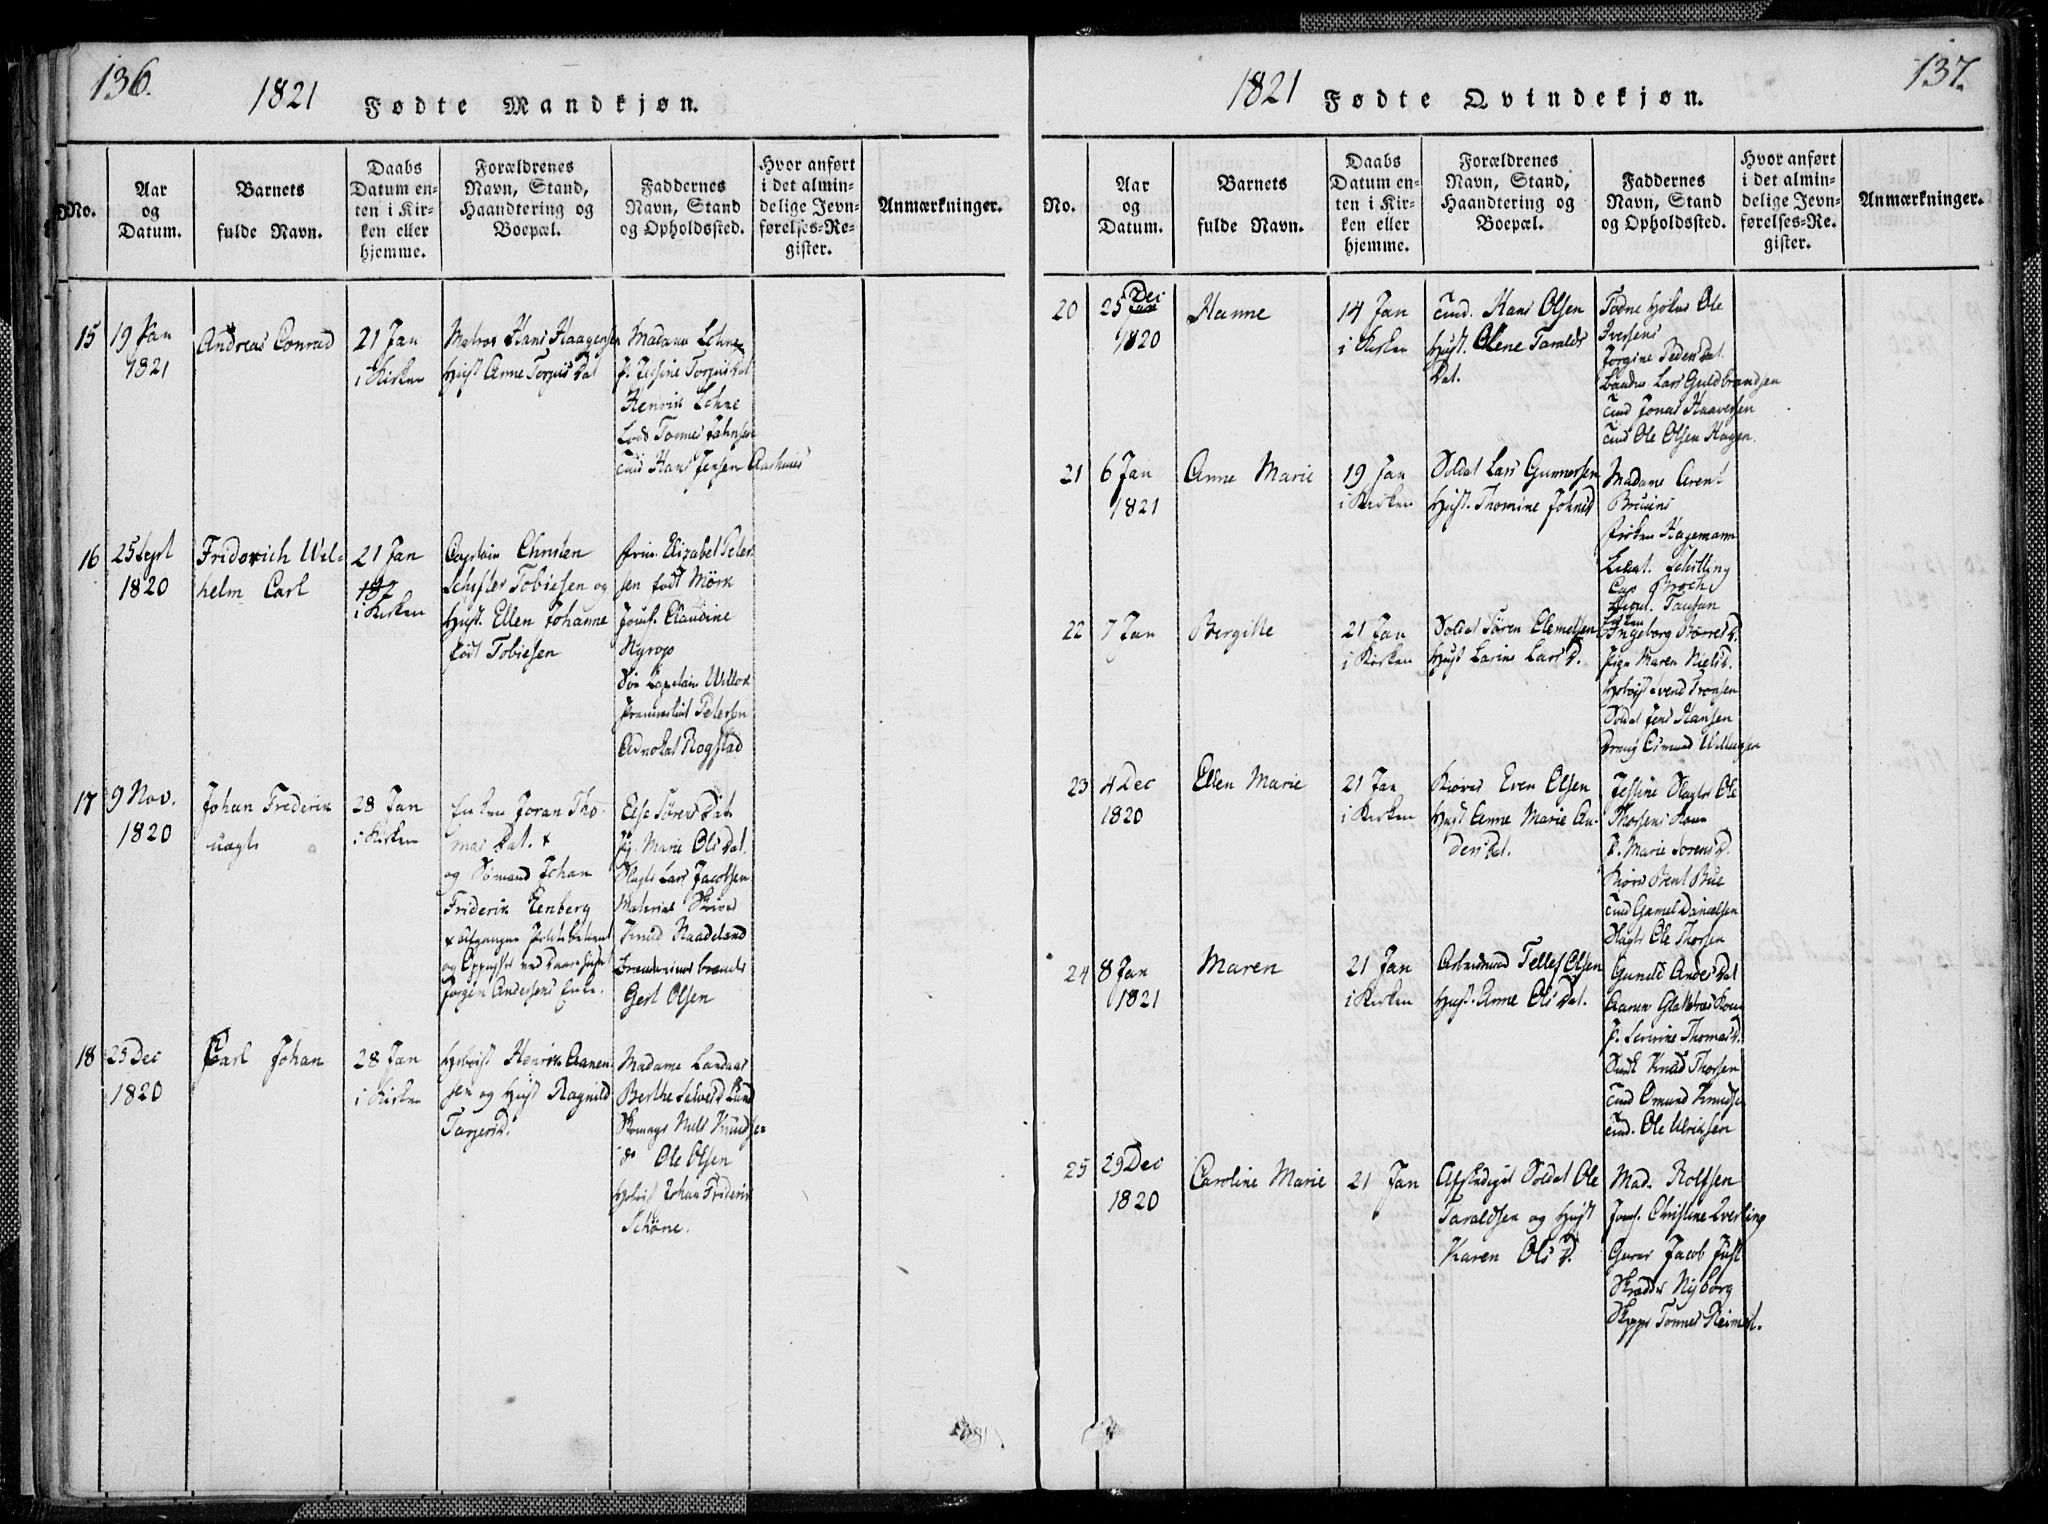 136.
1821 Fødte Mandkjøn.
No.
Aar
og
Datum.
Barnets
fulde Navn.
Daabs
Datum en-
ten i Kir-
ken eller
hjemme.
Forældrenes
Navn, Stand,
Haandtering og
Boepæl.
Faddernes
Navn, Stand
og Opholdssted.
Hvor anført
i det almin-
delige Jevn-
førelses-Re-
gister.
Anmærkninger.
15
19 Jan
1821
Andreas Conrad
21 Jan
i Kirken
Matros Hans Haagensen
Hust Anne Torjus Dat
Madame Lohne
P. Torjus Dat
Henrik Lohne
Tønnes Jahnsen
Hans Jensen Aarhuus
16
25 Sept
1820
Friderich Wil-
helm Carl
21 Jan
i Kirken
Captain Christen
Tobiesen og
Hust. Ellen Johanne
født Tobiesen
Elisabet Peter
sen født Mörk
Jomf. Claudine
Nyrop
Petersen
Advokat Rogstad
17
9 Nov.
1820
Johan Frederik
uægte
28 Jan
i Kirken
Enken Joran Tho-
mas Dat. +
og Sømand Johan
Friderik Eenberg
Jørgen Andersens Enke.
Else Sørens Dat
Pig. Marie Ols Dat.
Slagter Lars Jacobsen
Knud Naadeland
Gert Olsen
18
25 Dec
1820
Carl Johan
28 Jan
i Kirken
Henrik Aanen-
sen og Hust Ragnild
Madame Landaas
Berthe
Niels Knudsen
Do Ole Olsen
Johan Friderik
Schøne.
137.
1821 Fødte Qvindekjøn.
No.
Aar
og
Datum.
Barnets
fulde Navn.
Daabs
Datum en-
ten i Kir-
ken eller
hjemme.
Forældrenes
Navn, Stand,
Haandtering og
Boepæl.
Faddernes
Navn, Stand
og Opholdssted.
Hvor anført
i det almin-
delige Jevn-
førelses-Re-
gister.
Anmærkninger.
20
25 Dec
1820
Hanne
14 Jan
i Kirken
Tmd. Hans Olsen
Hust. Olene Taralds
Dat.
Ole
Iversens
Jorgine Peders Dat.
Lars Guldbrandsen
Tmd Jonas Haaversen
Tmd Ole Olsen Hagen.
21
6 Jan
1821
Anne Marie
19 Jan
i Kirken
Soldat Lars Gunnersen
Hust. Thomine Johnsd
Madame Arent
Frøken Hagemann
Lieut. Schilling
Cap Broch
Lieut. Tausan
22
7 Jan
Bergitte
21 Jan
i Kirken
Soldat Sören Clemetsen
Hust Larine Lars D.
Ingeborg Børres D.
Pige Maren Niels D.
Svend Tronsen
Soldat Jens Hansen
Dreng Osmund Willumsen
23
4 Dec
1820
Ellen Marie
21 Jan
i Kirken
Even Olsen
Hust Anne Marie An-
ders Dat.
Jestine Slagter Ole
Thorsens Kone
P. Marie Sorens D.
Bent Bue
Tmd Gamel Danielsen
Slagter Ole Thorsen
24
8 Jan
1821
Maren
21 Jan
i Kirken
Arbeidsmd Tellef Olsen
Hust. Anne Ols Dat.
Gunild Anders Dat
P. Severine Thomas D.
Knud Thorsen
Tmd Omund Knudsen
Tmd. Ole Ulriksen
25
29 Dec
1820
Caroline Marie
21 Jan
Afskediget Soldat Ole
Taraldsen og Hust
Karen Ols D.
Mad. Rolfsen
Jomf. Christine Everling
Jacob Just
Skrædder Nyborg
Skipper Tønnes Reimert.